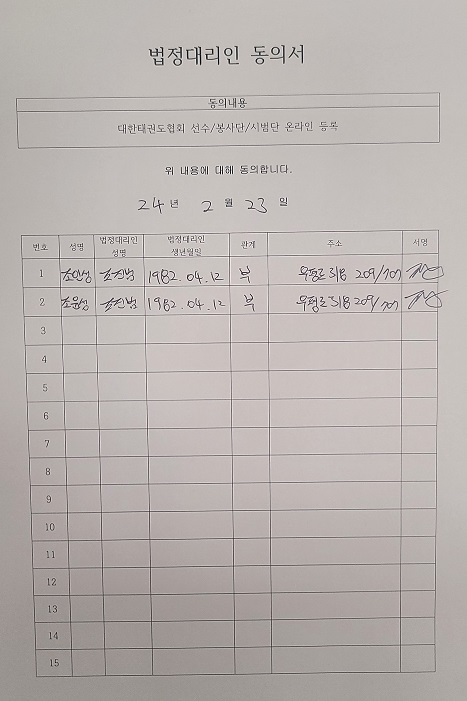 법정대리인 동의서
동의내용
대한태권도협회 선수/봉사단/시범단 온라인 등록
위 내용에 대해 동의합니다.
24 년 2 월 23 일
번호 성명 법정대리인 성명 법정대리인 생년월일 관계 주소 서명
1 조인성 조진남 1982.04.12 부 우평로318 209/707
2 조윤성 조진남 1982.04.12 부 우평로318 209/707
3
4
5
6
7
8
9
10
11
12
13
14
15